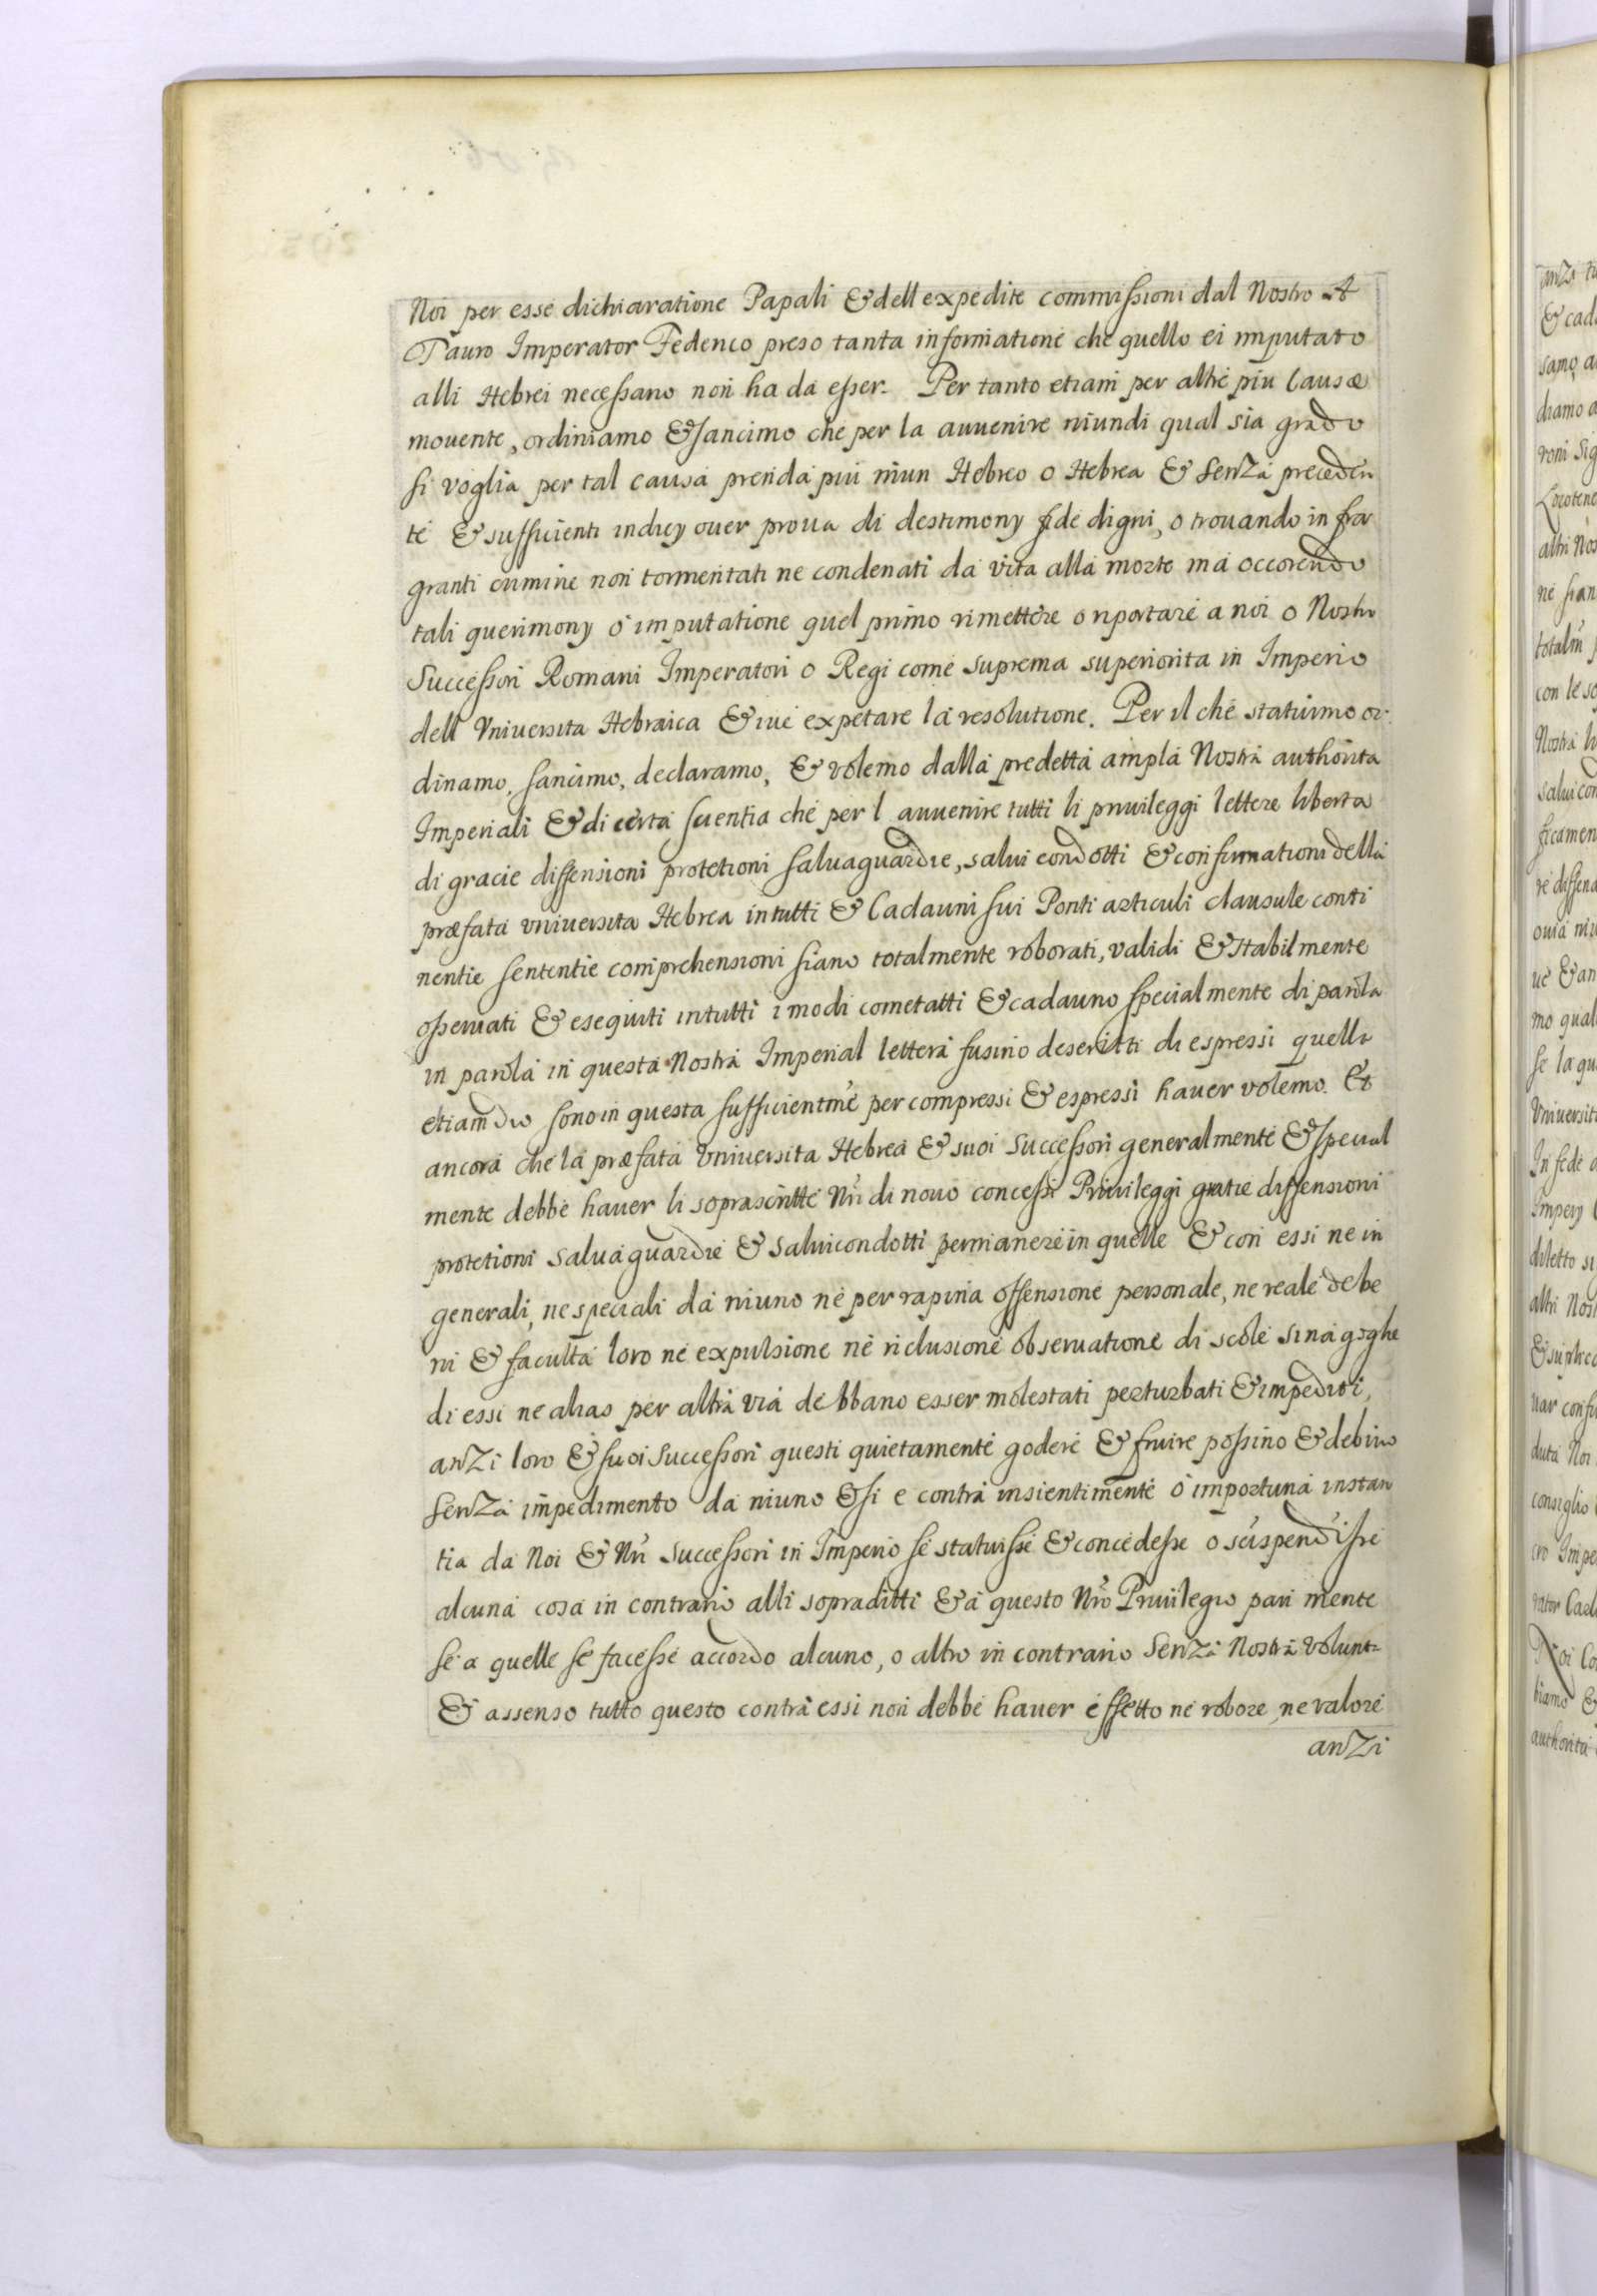 Noi per esse dichiaratione Papali & dell expedite commissioni dal Nostro A
Tauro Imperator Federico preso tanta informatione che quello ei imputato
alli Hebrei necessario non ha da esser. Per tanto etiam per altre piu Causæ
mouente, ordiniamo & sancimo che per la auuenire niundi qual sia grado
si voglia per tal causa prenda piu niun Hebreo o Hebrea & senza preceden
te & sufficienti indicy ouer proua di destimony fide digni, o trouando in fra
granti crimine non tormentati ne condenati da vita alla morte ma occorendo
tali querimony o imputatione quel primo rimettere o riportare a noi o Nostri
Successori Romani Imperatori o Regi come suprema superiorita in Imperio
dell Vniuersita Hebraica & iui expetare la resolutione. Per il che statuimo or
dinamo, sancimo, declaramo, & volemo dalla predetta ampla Nostra authorita
Imperiali & di certa scientia che per l auuenire tutti li priuileggi lettere liberta
di gracie diffensioni protetioni saluaguardie, salui condotti & confirmationi della
præfata vniuersita Hebrea in tutti & Cadauni sui Ponti articuli clausule conti
nentie sententie comprehensioni siano totalmente roborati, validi & stabilmente
osseruati & esequiti in tutti i modi cometatti & cadauno specialmente di parola
in parola in questa Nostra Imperial lettera fusino descritti di espressi quelli
etiamdio sono in questa sufficientme per compressi & espressi hauer volemo. Et
ancora che la præfata Vniuersita Hebrea & suoi Successori generalmente & special
mente debbe hauer li soprascritte Nri di nouo concessi Priuileggi gratie diffensioni
protetioni saluaguardie & saluicondotti permanere in quelle & con essi ne in
generali, ne speciali da niuno ne per rapina offensione personale, ne reale de be
ni & faculta loro ne expulsione ne riclusione obseruatione di scole sinagoghe
di essi ne alias per altra via debbano esser molestati perturbati & impediti,
anzi loro & suoi Successori questi quietamente godere & fruire possino & debino
senza impedimento da niuno & si e contra insientimente o importuna instan
tia da Noi & Nri Successori in Imperio se statuisse & concedesse o suspendisse
alcuna cosa in contrario alli sopraditti & a questo Nro Priuilegio pari mente
se a quelle se facesse accordo alcuno, o altro in contrario Senza Nostra Volunta
& assenso tutto questo contra essi non debbe hauer effetto ne robore ne valore
anzi